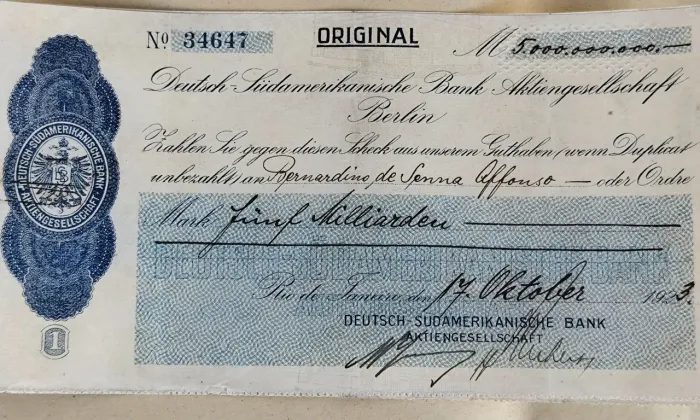 No 34647 ORIGINAL M 5.000.000.000.-
Deutsch-Südamerikanische Bank Aktiengesellschaft
Berlin
Zahlen Sie gegen diesen Scheck aus unserem Guthaben (wenn Duplicat
unbezahlt) an Bernardino de Senna Affonso — oder Ordre
Mark fünf Milliarden
DEUTSCH-SÜDAMERIKANISCHE BANK
AKTIENGESELLSCHAFT
Rio de Janeiro, den 17. Oktober 1923
DEUTSCH-SÜDAMERIKANISCHE BANK
AKTIENGESELLSCHAFT
DEUTSCH-SÜDAMERIKANISCHE BANK
AKTIENGESELLSCHAFT
1